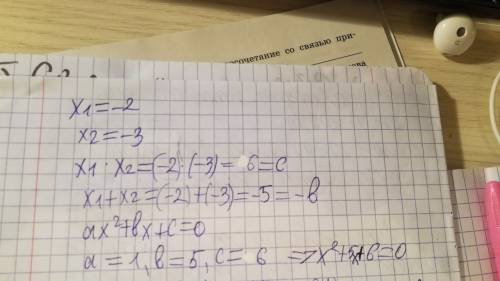 сочетание со связью при-
x1=-2
x2=-3
x1·x2=(-2)·(-3)= 6=c
x1+x2=(-2)+(-3)=-5=-b
ax²+bx+c=0
a=1, b=5, c= 6 =>x²+5x+6=0